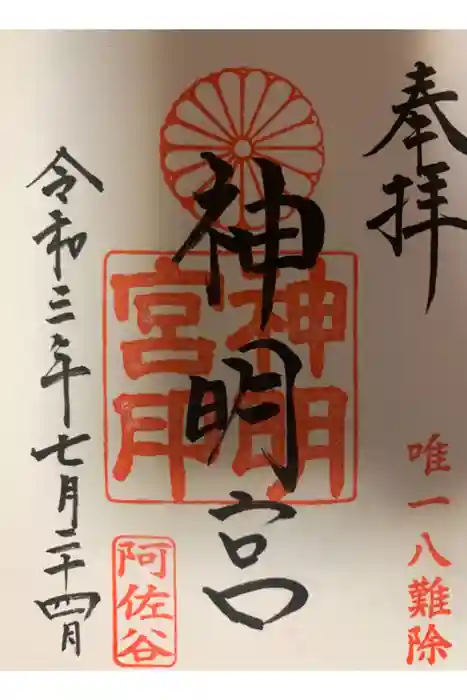 奉拝
唯一八難除
神明宮
神明
宮印
阿佐谷
令和三年七月二十四日